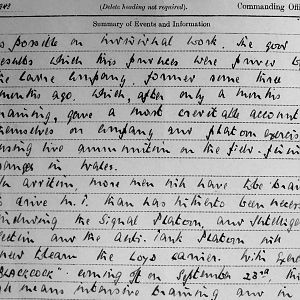 (Delete heading not required).
Commanding Offi
Summary of Events and Information
as possible on individual work. The good
results which this produces were proved by
the Carrier Company, formed some three
months ago, which, after only a months
training, gave a most creditable account of
themselves in company and platoon exercises
using live ammunition on the field-firing
ranges in Wales.
In addition, more men will have to be trained
to drive M.T. than has hitherto been necessary
including the Signal Platoon, and Intelligence
Section and the Anti-Tank Platoon will
have to learn the Loyd Carrier. With Exercise
"BLACKCOCK" coming off on September 23rd, this
means intensive training and in